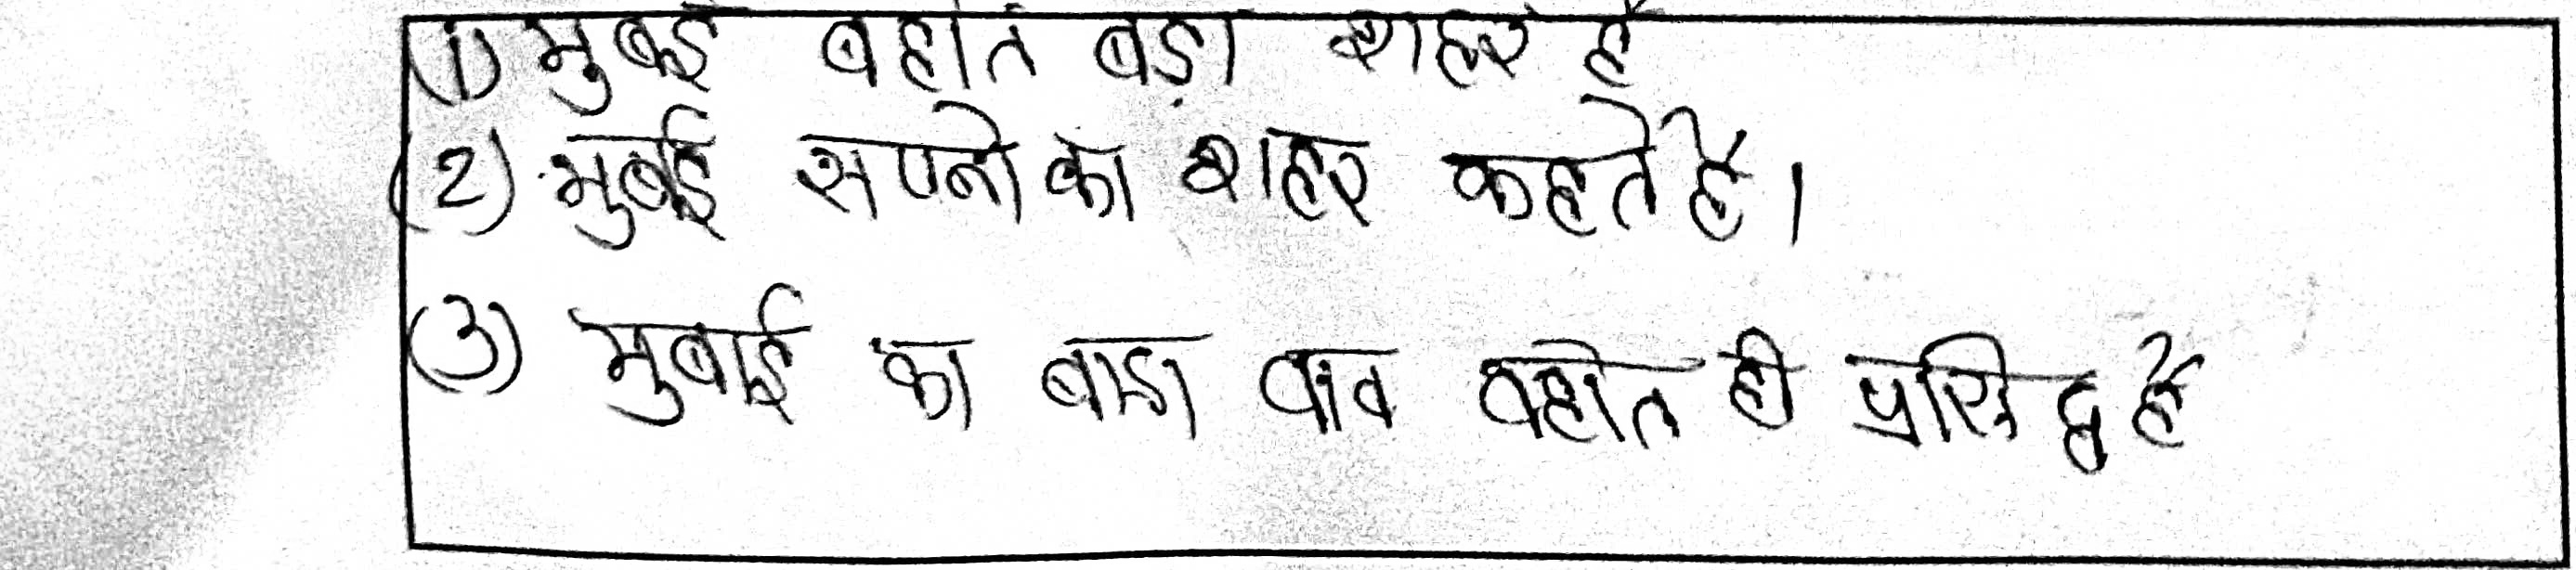 (1) मुबई बहोत बड़ा शहर है
(2) मुबई सपनो का शहर कहते है।
(3) मुबाई का बाडा पाव बहोत ही प्रसिद्ध है